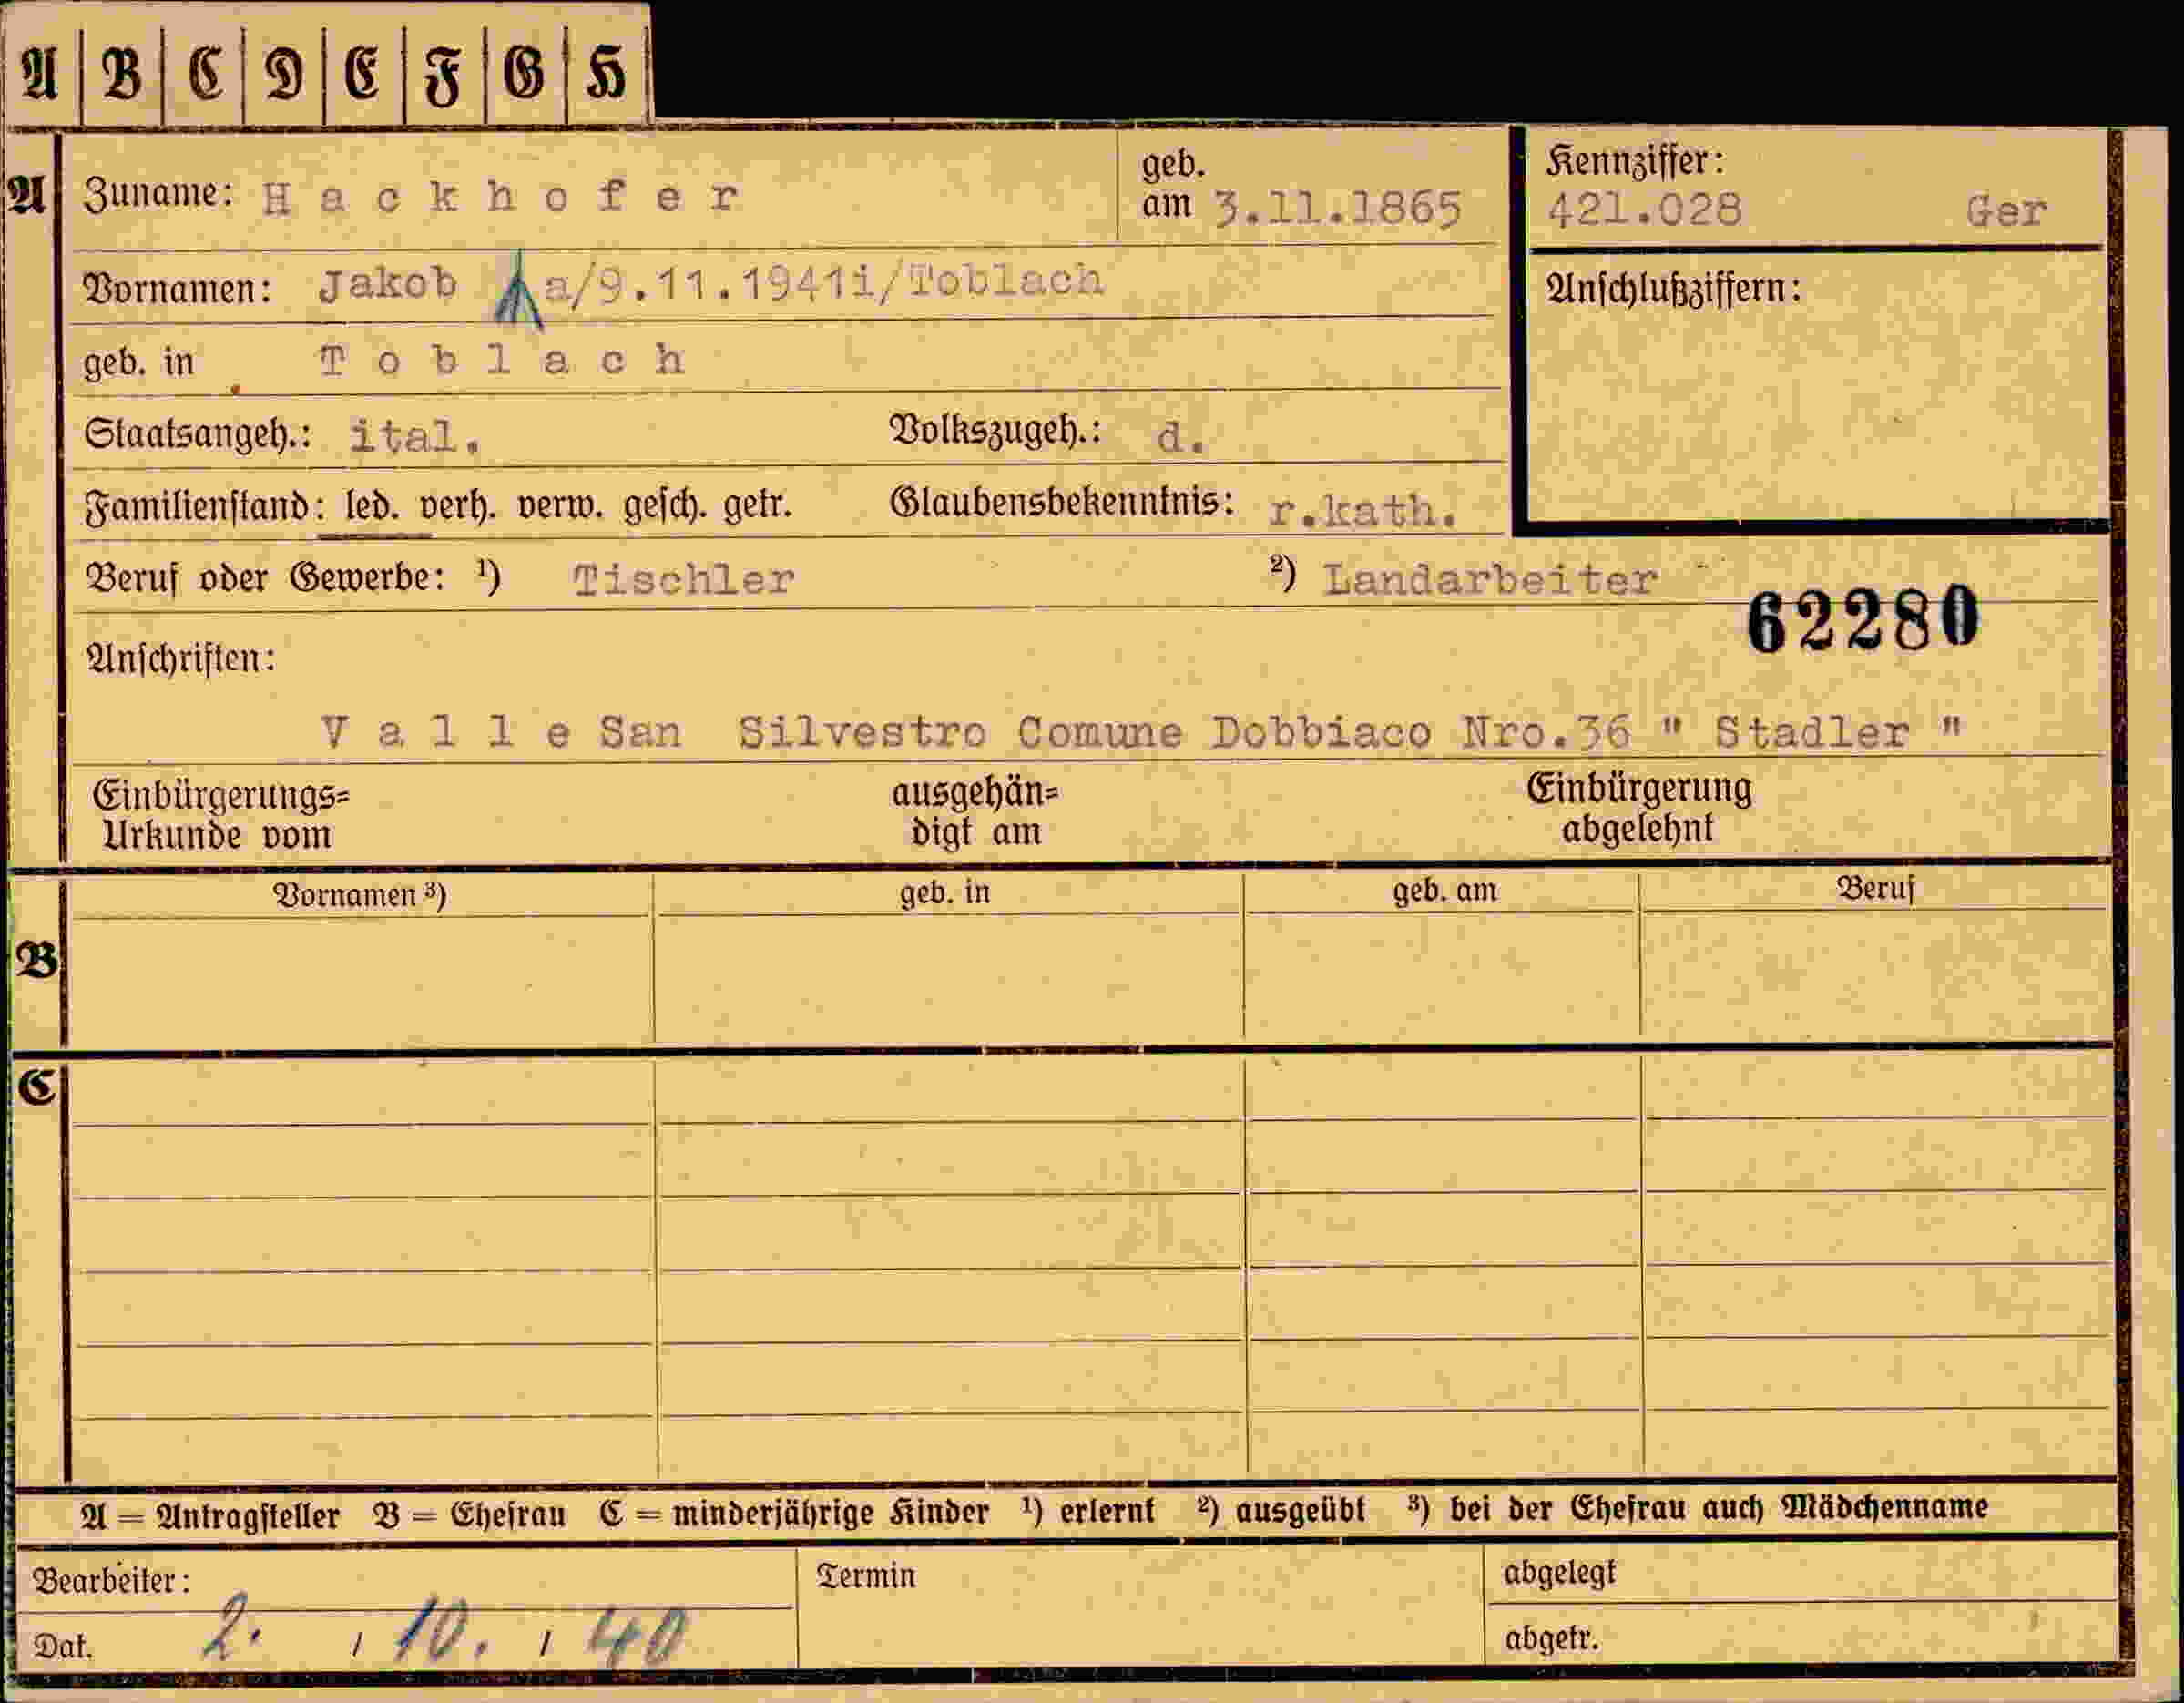 A B C D E F G H
A Zuname: Hackhofer geb. am 3.11.1865 Kennziffer: 421.028 Ger
Vornamen: Jakob a/9.11.1941i/Toblach Anschlußziffern:
geb. in Toblach
Staatsangeh.: ital. Volkszugeh.: d.
Familienstand: led. verh. verw. gesch. getr. Glaubensbekenntnis: r.kath.
Beruf oder Gewerbe: ¹) Tischler ²) Landarbeiter
62280
Anschriften:
Valle San Silvestro Comune Dobbiaco Nro.36 " Stadler "
Einbürgerungs= ausgehän= Einbürgerung
Urkunde vom digt am abgelehnt
Vornamen ³) geb. in geb. am Beruf
B
C
A = Antragsteller B = Ehefrau C = minderjährige Kinder ¹) erlernt ²) ausgeübt ³) bei der Ehefrau auch Mädchenname
Bearbeiter: Termin abgelegt
Dat. 2. / 10. / 40 abgetr.